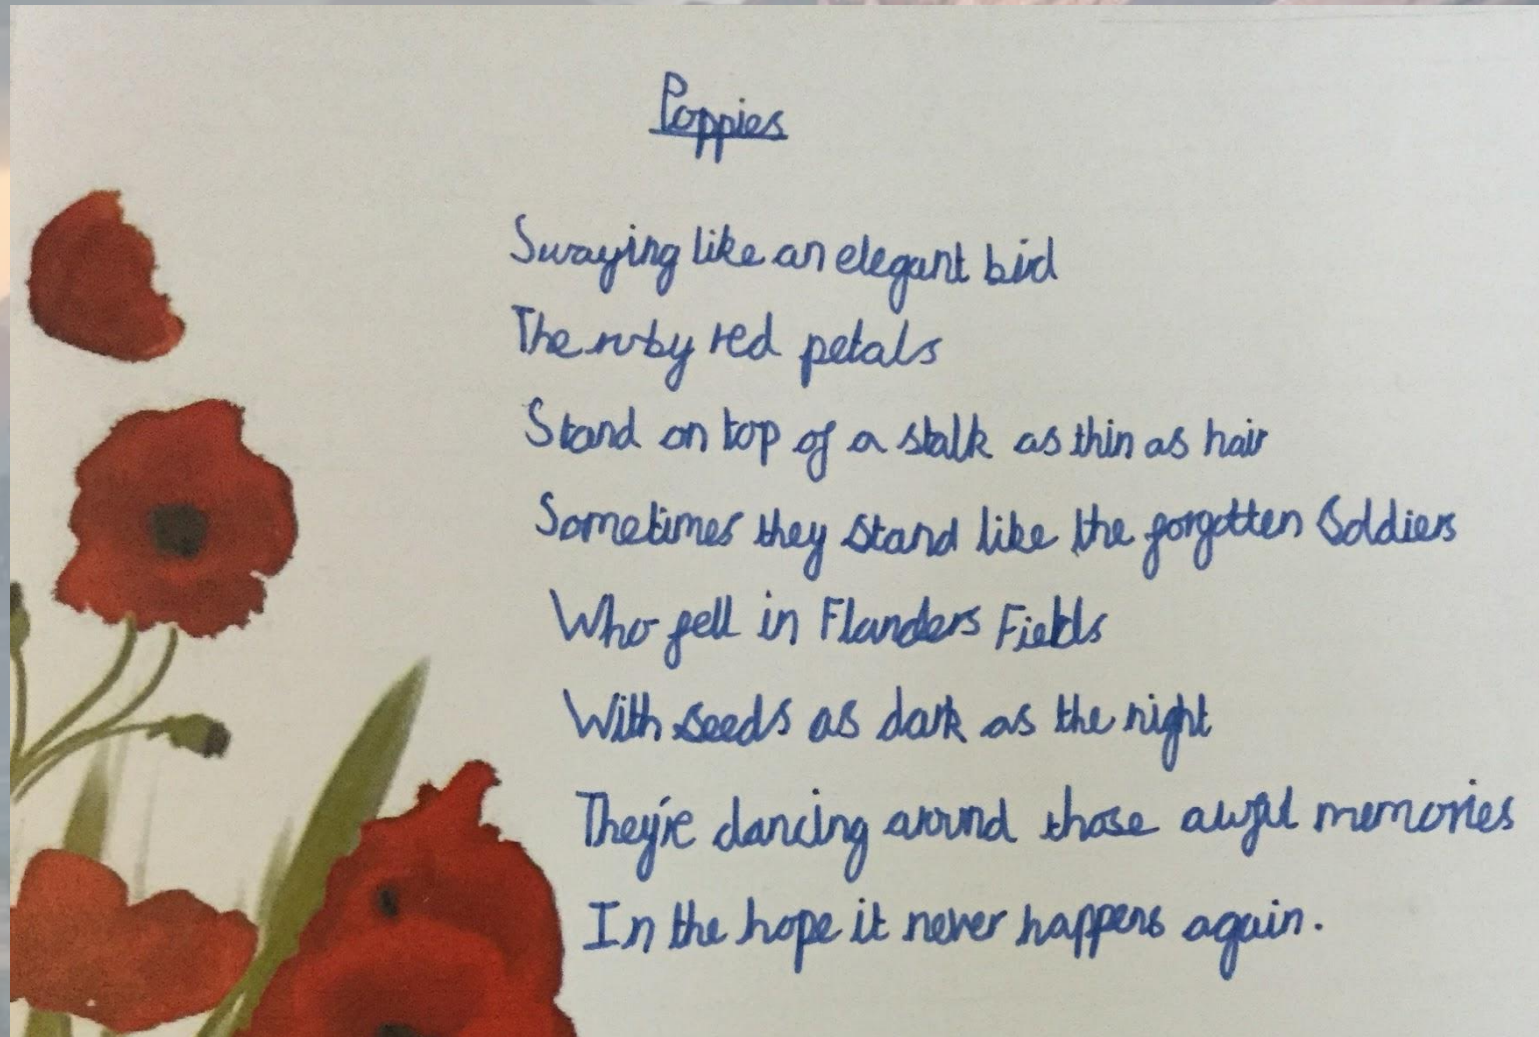 Poppies
Swaying like an elegant bird
The ruby red petals
Stand on top of a stalk as thin as hair
Sometimes they stand like the forgotten Soldiers
Who fell in Flanders Fields
With seeds as dark as the night
They're dancing around those awful memories
In the hope it never happens again.